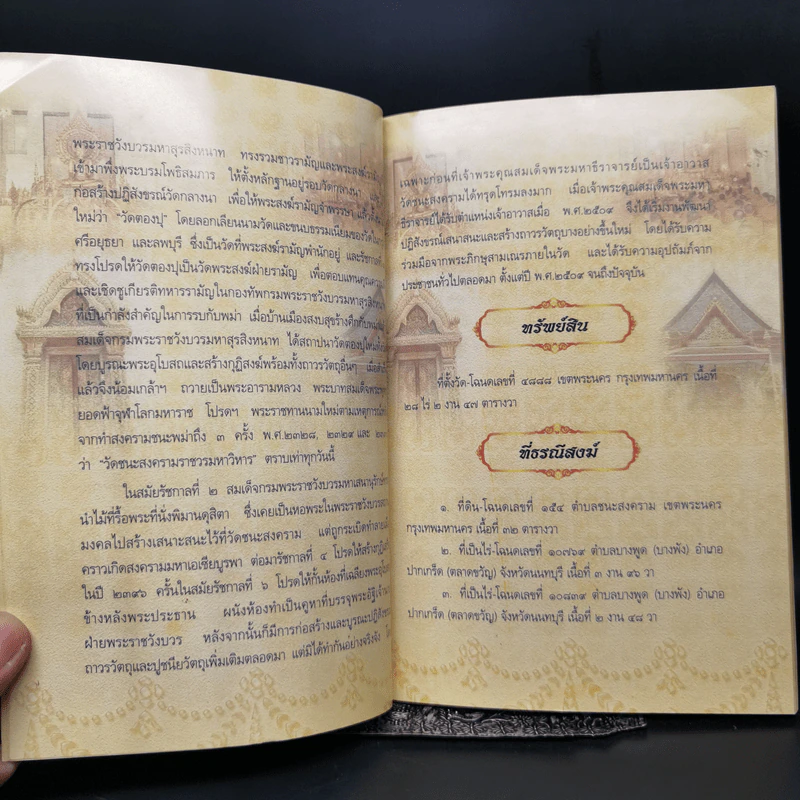 พระราชวังบวรมหาสุรสิงหนาท ทรงรวมชาวรามัญและพระสงฆ์
เข้ามาพึ่งพระบรมโพธิสมภาร ให้ตั้งหลักฐานอยู่รอบวัดกลางนา
ก่อสร้างปฏิสังขรณ์วัดกลางนา เพื่อให้พระสงฆ์รามัญจำพรรษา
ใหม่ว่า "วัดตองปุ" โดยลอกเลียนนามวัดและขนบธรรมเนียมของวัดใน
ศรีอยุธยา และลพบุรี ซึ่งเป็นวัดที่พระสงฆ์รามัญพำนักอยู่ และรัชกาลที่
ทรงโปรดให้วัดตองปุเป็นวัดพระสงฆ์ฝ่ายรามัญ เพื่อตอบแทนคุณความ
และเชิดชูเกียรติทหารรามัญในกองทัพกรมพระราชวังบวรมหาสุรสิงหนาท
ที่เป็นกำลังสำคัญในการรบกับพม่า เมื่อบ้านเมืองสงบสุขร้างศึกกับพม่า
สมเด็จกรมพระราชวังบวรมหาสุรสิงหนาท ได้สถาปนาวัดตองปุใหม่
โดยบูรณะพระอุโบสถและสร้างกุฏิสงฆ์พร้อมทั้งถาวรวัตถุอื่นๆ เมื่อ
แล้วจึงน้อมเกล้าฯ ถวายเป็นพระอารามหลวง พระบาทสมเด็จพระ
ยอดฟ้าจุฬาโลกมหาราช โปรดฯ พระราชทานนามใหม่ตามเหตุการณ์
จากทำสงครามชนะพม่าถึง ๓ ครั้ง พ.ศ.๒๓๒๘, ๒๓๒๙ และ
ว่า "วัดชนะสงครามราชวรมหาวิหาร" ตราบเท่าทุกวันนี้
ในสมัยรัชกาลที่ ๒ สมเด็จกรมพระราชวังบวรมหาเสนานุรักษ์
นำไม้ที่รื้อพระที่นั่งพิมานดุสิตา ซึ่งเคยเป็นหอพระในพระราชวังบวร
มงคลไปสร้างเสนาะสนะไว้ที่วัดชนะสงคราม แต่ถูกระเบิดทำลาย
คราวเกิดสงครามมหาเอเซียบูรพา ต่อมารัชกาลที่ ๔ โปรดให้สร้างกุฏิ
ในปี ๒๓๙๖ ครั้นในสมัยรัชกาลที่ ๖ โปรดให้กั้นห้องที่เฉลียงพระอุโบสถ
ข้างหลังพระประธาน ผนังห้องทำเป็นคูหาที่บรรจุพระอัฐิเจ้า
ฝ่ายพระราชวังบวร หลังจากนั้นก็มีการก่อสร้างและบูรณะปฏิสังขรณ์
ถาวรวัตถุและปูชนียวัตถุเพิ่มเติมตลอดมา แต่มิได้ทำกันอย่างจริงจัง
เฉพาะก่อนที่เจ้าพระคุณสมเด็จพระมหาธีราจารย์เป็นเจ้าอาวาส
วัดชนะสงครามได้ทรุดโทรมลงมาก เมื่อเจ้าพระคุณสมเด็จพระมหา
ธีราจารย์ได้รับตำแหน่งเจ้าอาวาสเมื่อ พ.ศ.๒๕๐๙ จึงได้เริ่มงานพัฒนา
ปฏิสังขรณ์เสนาสนะและสร้างถาวรวัตถุบางอย่างขึ้นใหม่ โดยได้รับความ
ร่วมมือจากพระภิกษุสามเณรภายในวัด และได้รับความอุปถัมภ์จาก
ประชาชนทั่วไปตลอดมา ตั้งแต่ปี พ.ศ.๒๕๐๙ จนถึงปัจจุบัน
ทรัพย์สิน
ที่ตั้งวัด-โฉนดเลขที่ ๔๘๘๘ เขตพระนคร กรุงเทพมหานคร เนื้อที่
๒๘ ไร่ ๒ งาน ๔๗ ตารางวา
ที่ธรณีสงฆ์
๑. ที่ดิน-โฉนดเลขที่ ๑๕๔ ตำบลชนะสงคราม เขตพระนคร
กรุงเทพมหานคร เนื้อที่ ๓๒ ตารางวา
๒. ที่เป็นไร่-โฉนดเลขที่ ๑๐๗๖๙ ตำบลบางพูด (บางพัง) อำเภอ
ปากเกร็ด (ตลาดขวัญ) จังหวัดนนทบุรี เนื้อที่ ๓ งาน ๙๖ วา
๓. ที่เป็นไร่-โฉนดเลขที่ ๑๐๘๓๙ ตำบลบางพูด (บางพัง) อำเภอ
ปากเกร็ด (ตลาดขวัญ) จังหวัดนนทบุรี เนื้อที่ ๒ งาน ๔๘ วา